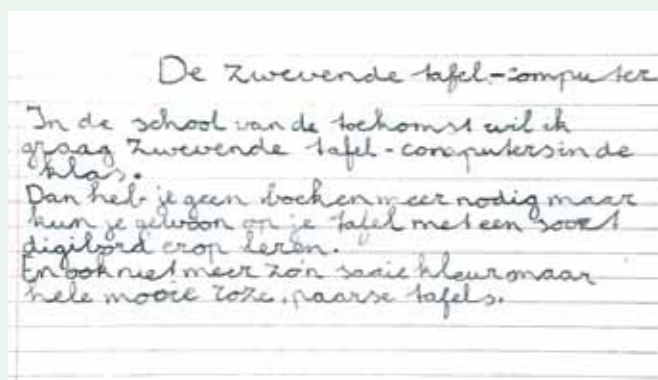 De zwevende tafel-computer
In de school van de toekomst wil ik
graag zwevende tafel-computers in de
klas.
Dan heb je geen boeken meer nodig maar
kun je gewoon op je tafel met een soort
digibord erop leren.
En ook niet meer zo'n saaie kleur maar
hele mooie roze, paarse tafels.